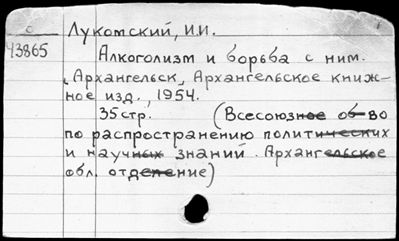 Лукомский, И.И.
43865 Алкоголизм и борьба с ним.
Архангельск, Архангельское книж-
ное изд., 1954.
35 стр. (Всесоюзное об-во
по распространению политических
и научных знаний. Архангельское
обл. отделение)